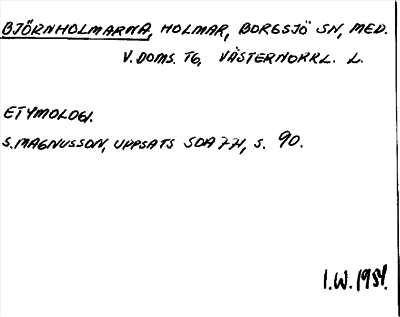 BJÖRNHOLMARNA, HOLMAR, BORGSJÖ SN, MED.
V. DOMS. TG, VÄSTERNORRL. L.
ETYMOLOGI.
S. MAGNUSSON, UPPSATS SOA 771, S. 90.
I.W. 1981.